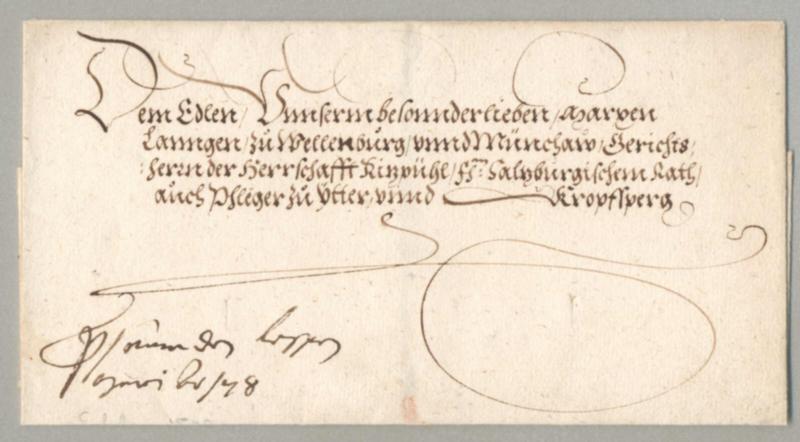 Dem Edlen/ Vnnserm besonnder lieben/ Marxen
Lanngen/ zu Wellenburg/ vnnd Münchaw/ Gerichts/
herrn der Herrschafft Kitzpühl/ fr: Saltzburgischem Rath/
auch Phleger zu Ytter/ vnnd Kropfsperg
den
78